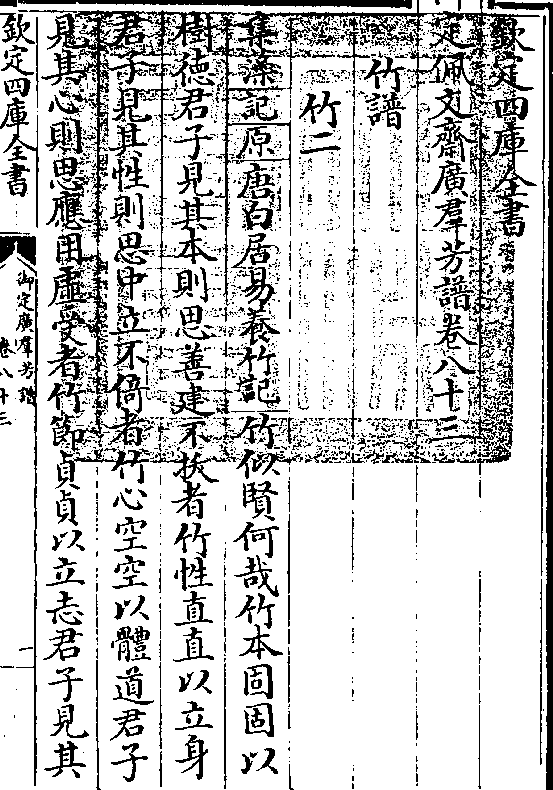 欽定四庫全書
定佩文齋廣羣芳譜卷八十三
竹譜
竹二
集藻記原唐白居易養竹記竹似賢何哉竹本固固以
樹徳君子見其本則思善建不拔者竹性直直以立身
君子見其性則思中立不倚者竹心空空以體道君子
見其心則思應用虚受者竹節貞貞以立志君子見其
欽定四庫全書
御定廣羣芳譜
卷八十三
一